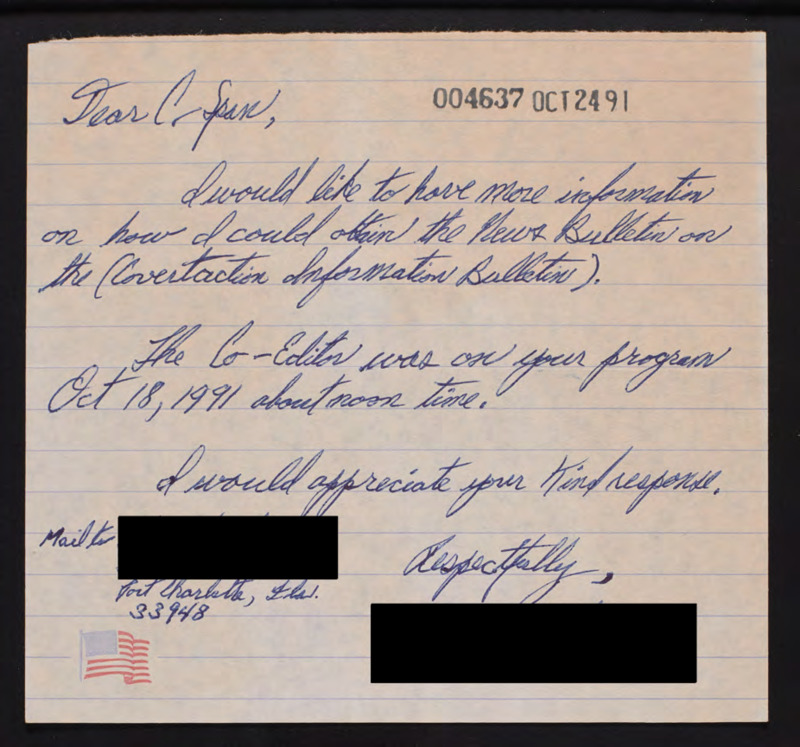 Dear C-Span,
004637 OCT 24 91
I would like to have more information
on how I could obtain the News Bulletin on
the (Covertaction Information Bulletin).
The Co-Editor was on your program
Oct 18, 1991 about noon time.
I would appreciate your Kind response.
Mail to
Port Charlotte, Fla.
33948
Respectfully,